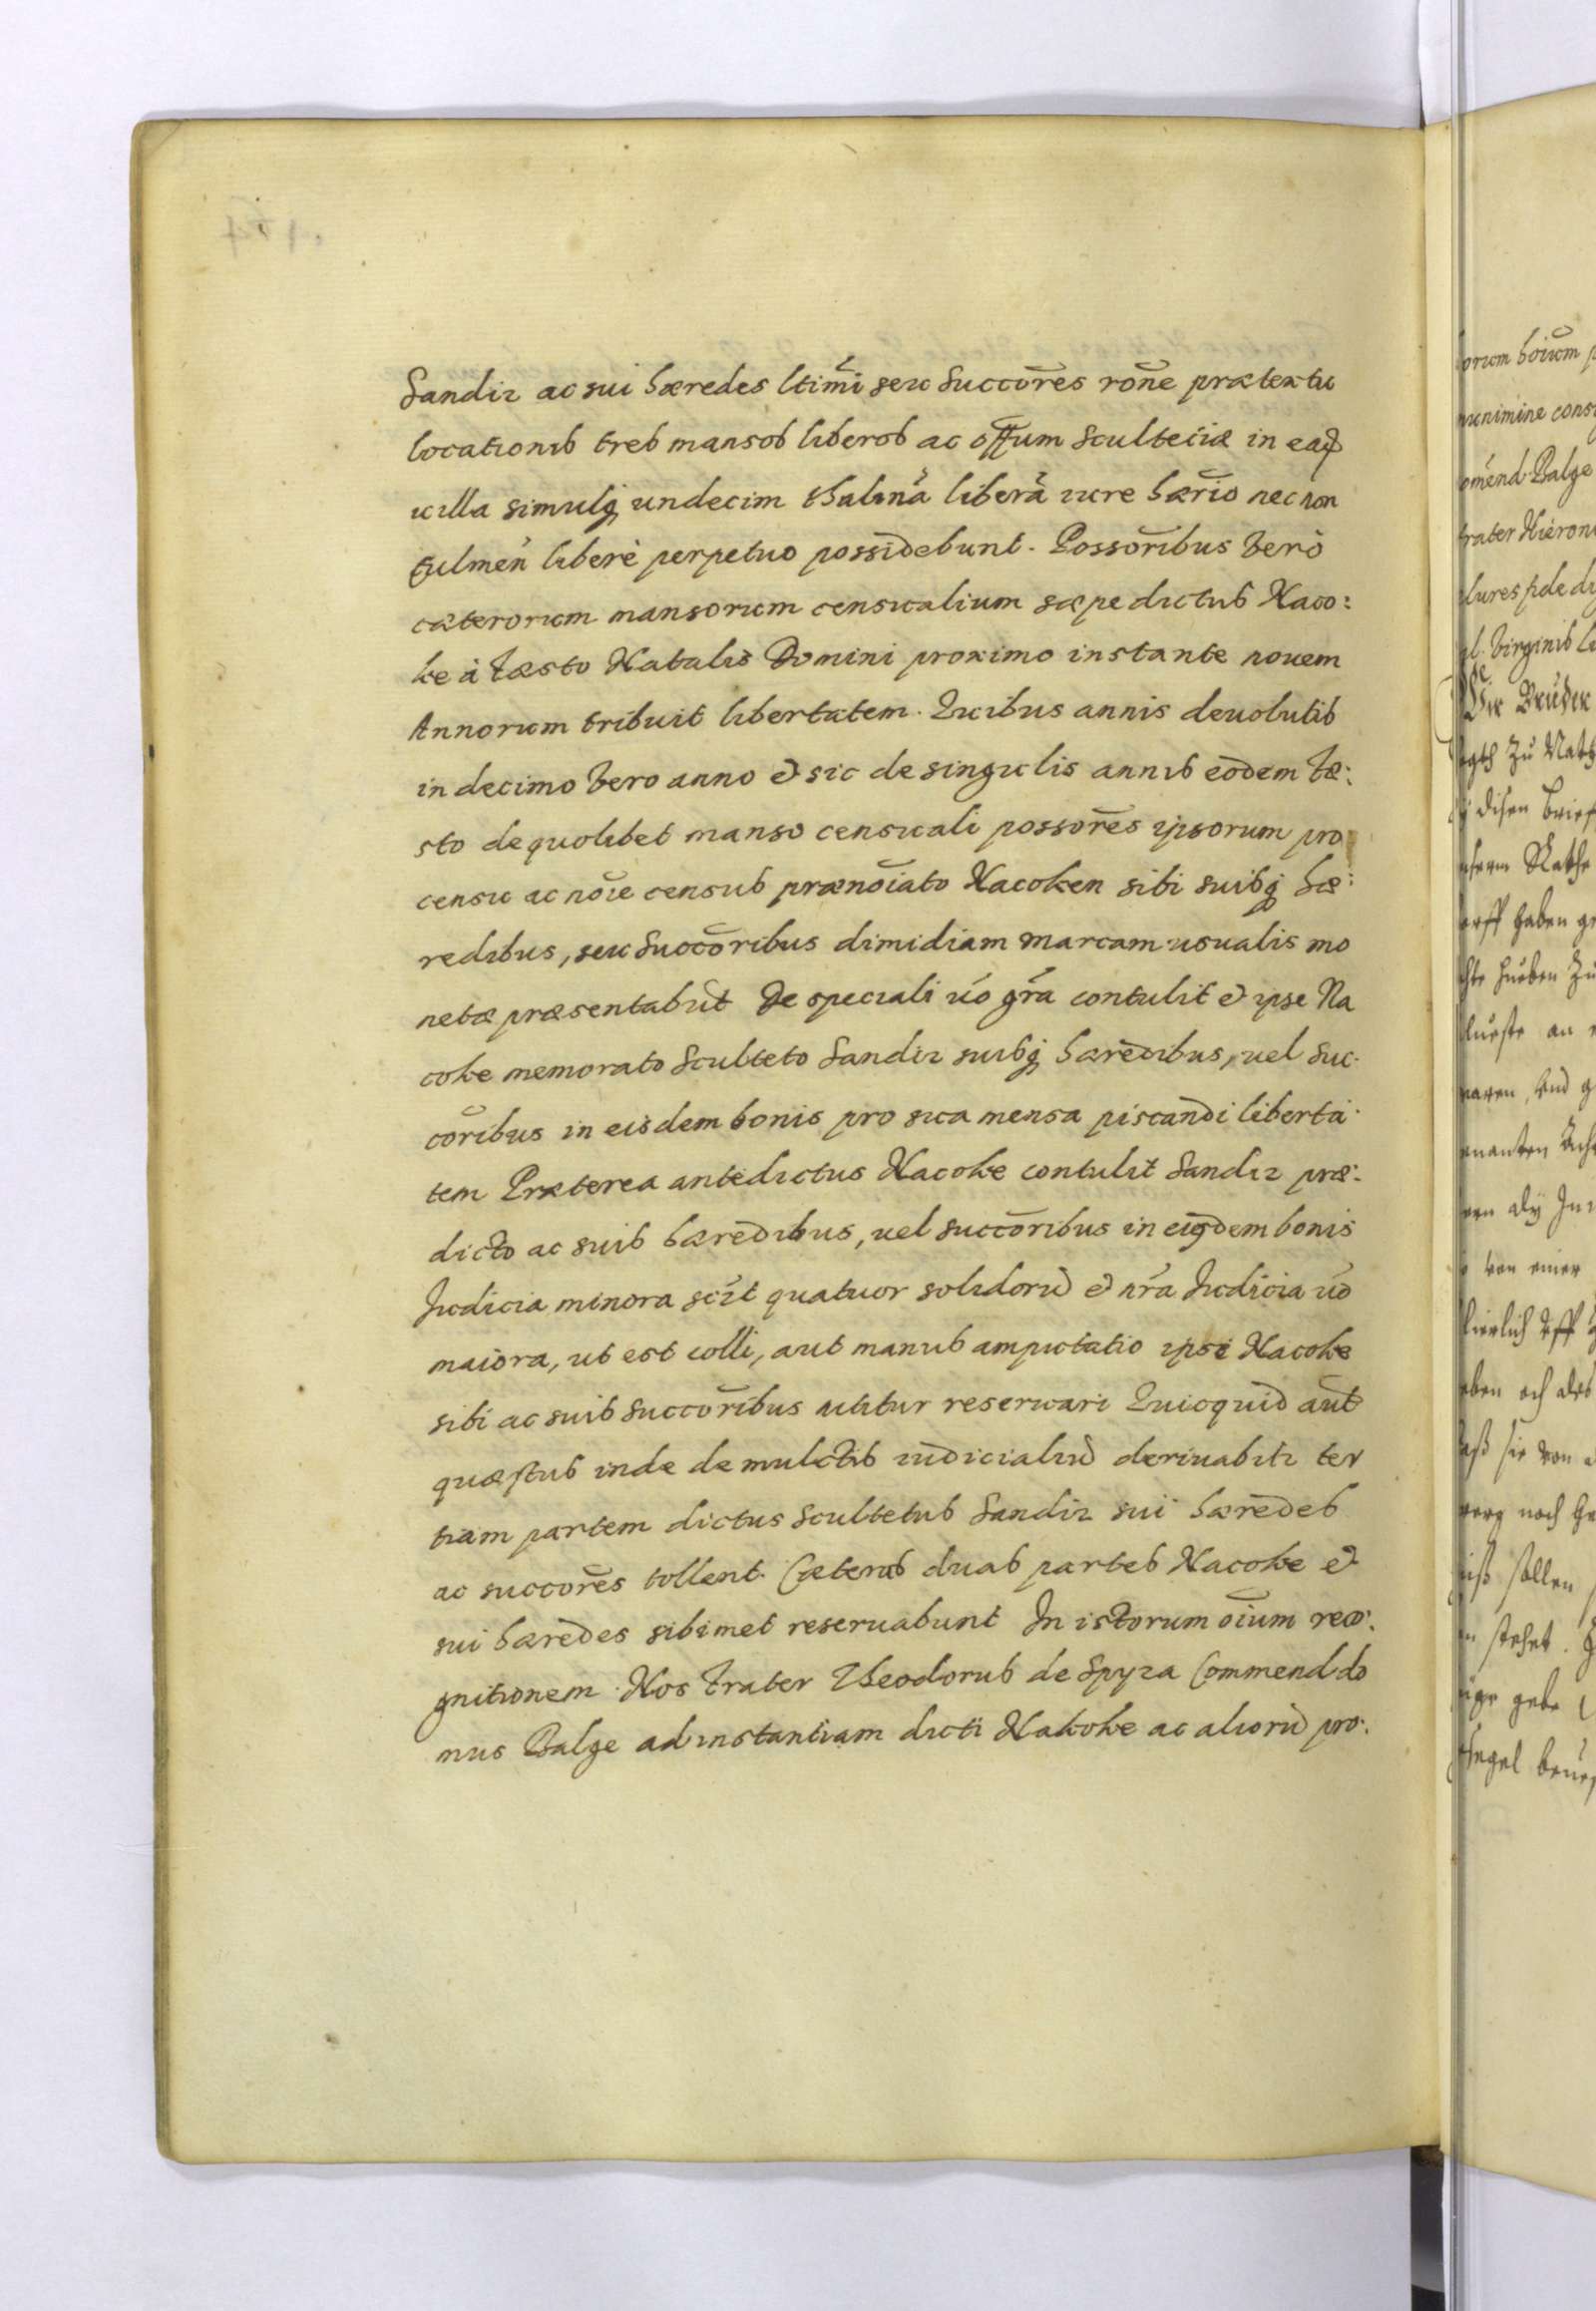 Sandiz ac sui hæredes ltimi seu Succores rone prætextu
locationis tres mansos liberos ac offum Scultetiæ in ead
uilla simulq undecim libera iure hærio nec non
liberè perpetuo possidebunt. Possoribus verò
cæterorum mansorum censualium sæpe dictus Naco:
ke à festo Natalis Domini proximo instante nouem
Annorum tribuit libertatem. Quibus annis deuolutis
in decimo vero anno et sic de singulis annis eodem fæ:
sto de quolibet manso censuali possores ipsorum pro
censu ac noie census prænoiato Nacoken sibi suibq hæ:
redibus, seu Succoribus dimidiam marcam usualis mo
netæ præsentabut De speciali uo gra contulit et ipse Na
coke memorato Sculteto Sandiz suibq hæredibus, uel Suc.
coribus in eisdem bonis pro sua mensa piscandi liberta.
tem Præterea antedictus Nacoke contulit Sandiz præ:
dicto ac suis hæredibus, uel succoribus in eisdem bonis
Judicia minora scit quatuor solidoru et nra Judicia uo
maiora, ut est colli, aut manus amputatio ipsi Nacoke
sibi ac suis Succoribus utitur reseruari Quicquid aut
quæstus inde de mulctis iudicialiu deriuabitr ter
tiam partem dictus Scultetus Sandiz sui hæredes
ac succores tollent. Cæteras duas partes Nacoke et
sui hæredes sibimet reseruabunt In istorum oium reco:
gnitionem. Nos frater Theodorus de Spyra Commend do
mus Balge ad instantiam dicti Nakoke ac alioru pro.
orum boium
munimine cons
omend Balge
frater Hieron
plures pde di
gl. Virginis
Wir Bruder
disen brief
haben
von einer
sollen